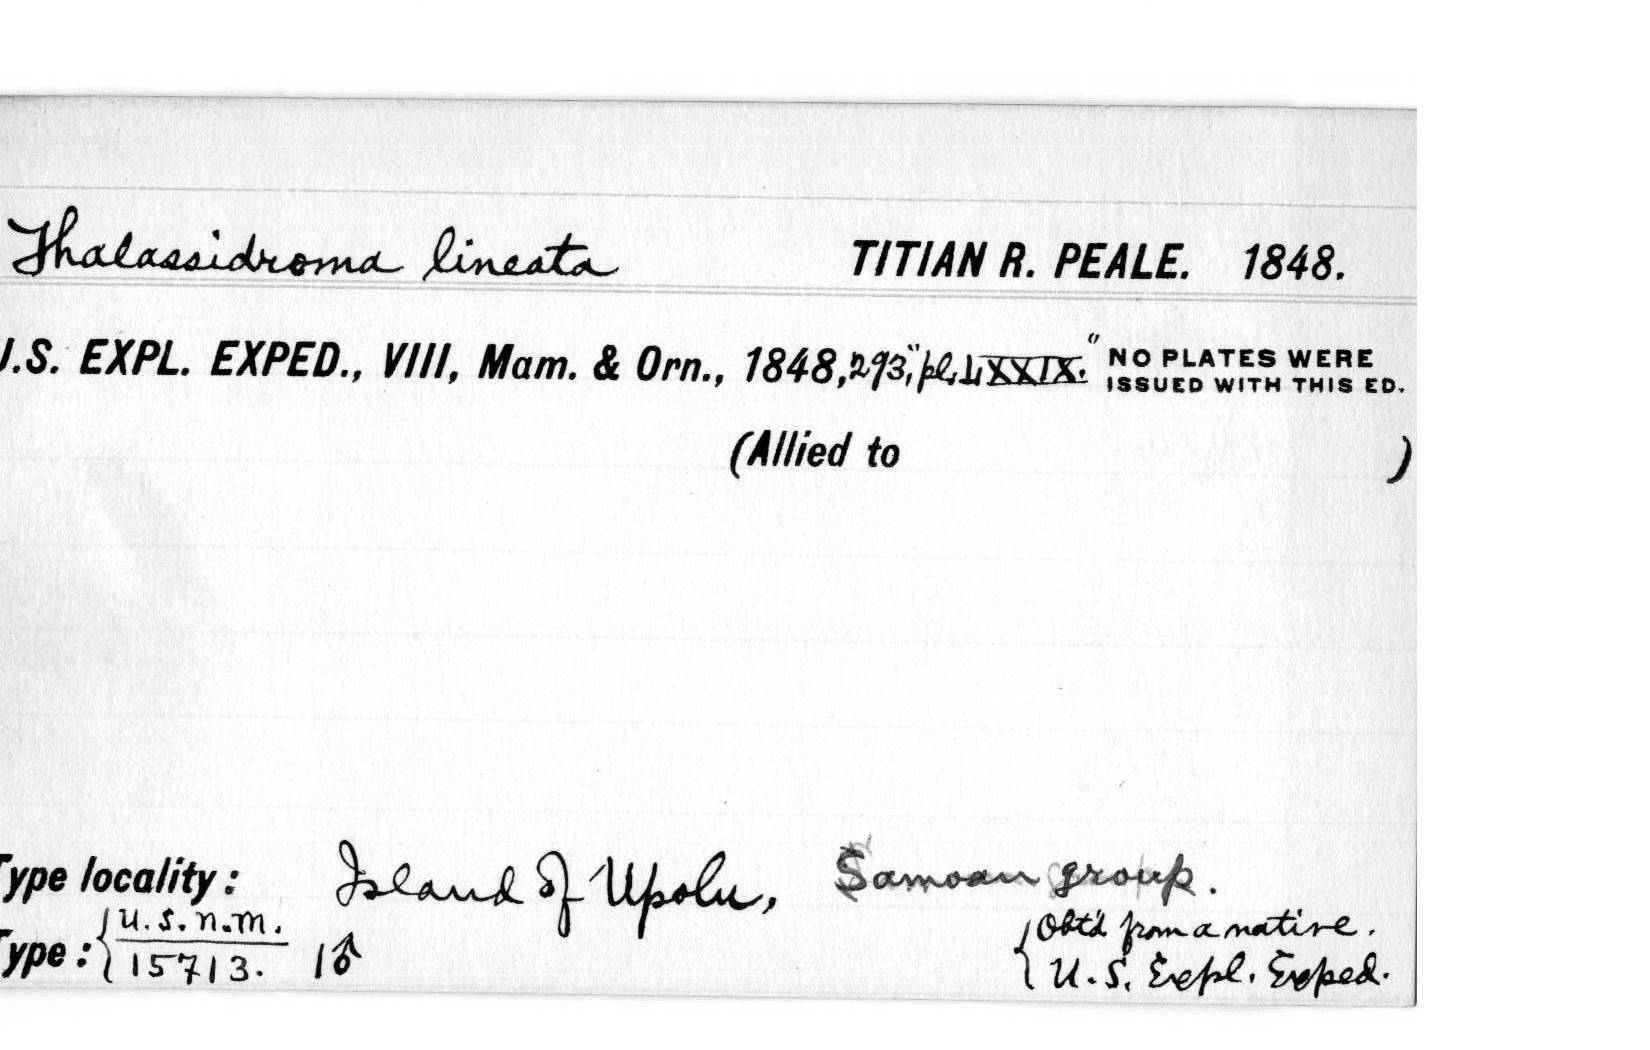 Thalassidroma lineata TITIAN R. PEALE. 1848.
U.S. EXPL. EXPED., VIII, Mam. & Orn., 1848, 293, "pl. LXXIX." NO PLATES WERE
ISSUED WITH THIS ED.
(Allied to )
Type locality: Island of Upolu, Samoan group.
Type: { U.S.N.M. { Obt'd from a native.
15713. 1♂ U.S. Expl. Exped.